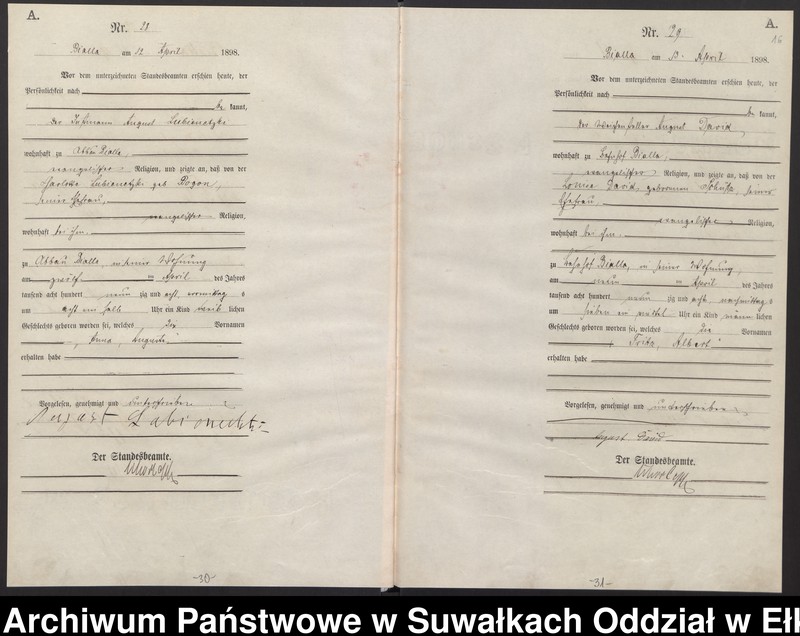 A.
Nr. 28
Bialla am 12 April 1898.
Vor dem unterzeichneten Standesbeamten erschien heute, der
Persönlichkeit nach
be kannt,
der August Lubienetzki
wohnhaft zu Abbau Bialla,
evangelischer Religion, und zeigte an, daß von der
Charlotte Lubienetzki geb Rogon,
seiner Ehefrau,
evangelischer Religion,
wohnhaft bei ihm,
zu Abbau Bialla, in seiner Wohnung
am zwölften April des Jahres
tausend acht hundert neun zig und acht, vormittag s
um acht ein halb Uhr ein Kind weib lichen
Geschlechts geboren worden sei, welches die Vornamen
Anna, Auguste
erhalten habe
Vorgelesen, genehmigt und unterschrieben
Der Standesbeamte.
-30-
A.
16
Nr. 29
Bialla am 13. April 1898.
Vor dem unterzeichneten Standesbeamten erschien heute, der
Persönlichkeit nach
be kannt,
der Weichensteller August David,
wohnhaft zu Bahnhof Bialla,
evangelischer Religion, und zeigte an, daß von der
David, geborenen seiner
Ehefrau,
evangelischer Religion,
wohnhaft bei ihm,
zu Bahnhof Bialla, in seiner Wohnung
am neun April des Jahres
tausend acht hundert neun zig und acht, nachmittag s
um sieben ein viertel Uhr ein Kind männ lichen
Geschlechts geboren worden sei, welches die Vornamen
Fritz, Albert
erhalten habe
Vorgelesen, genehmigt und unterschrieben
August David
Der Standesbeamte.
-31-
Archiwum Państwowe w Suwałkach Oddział w Eł